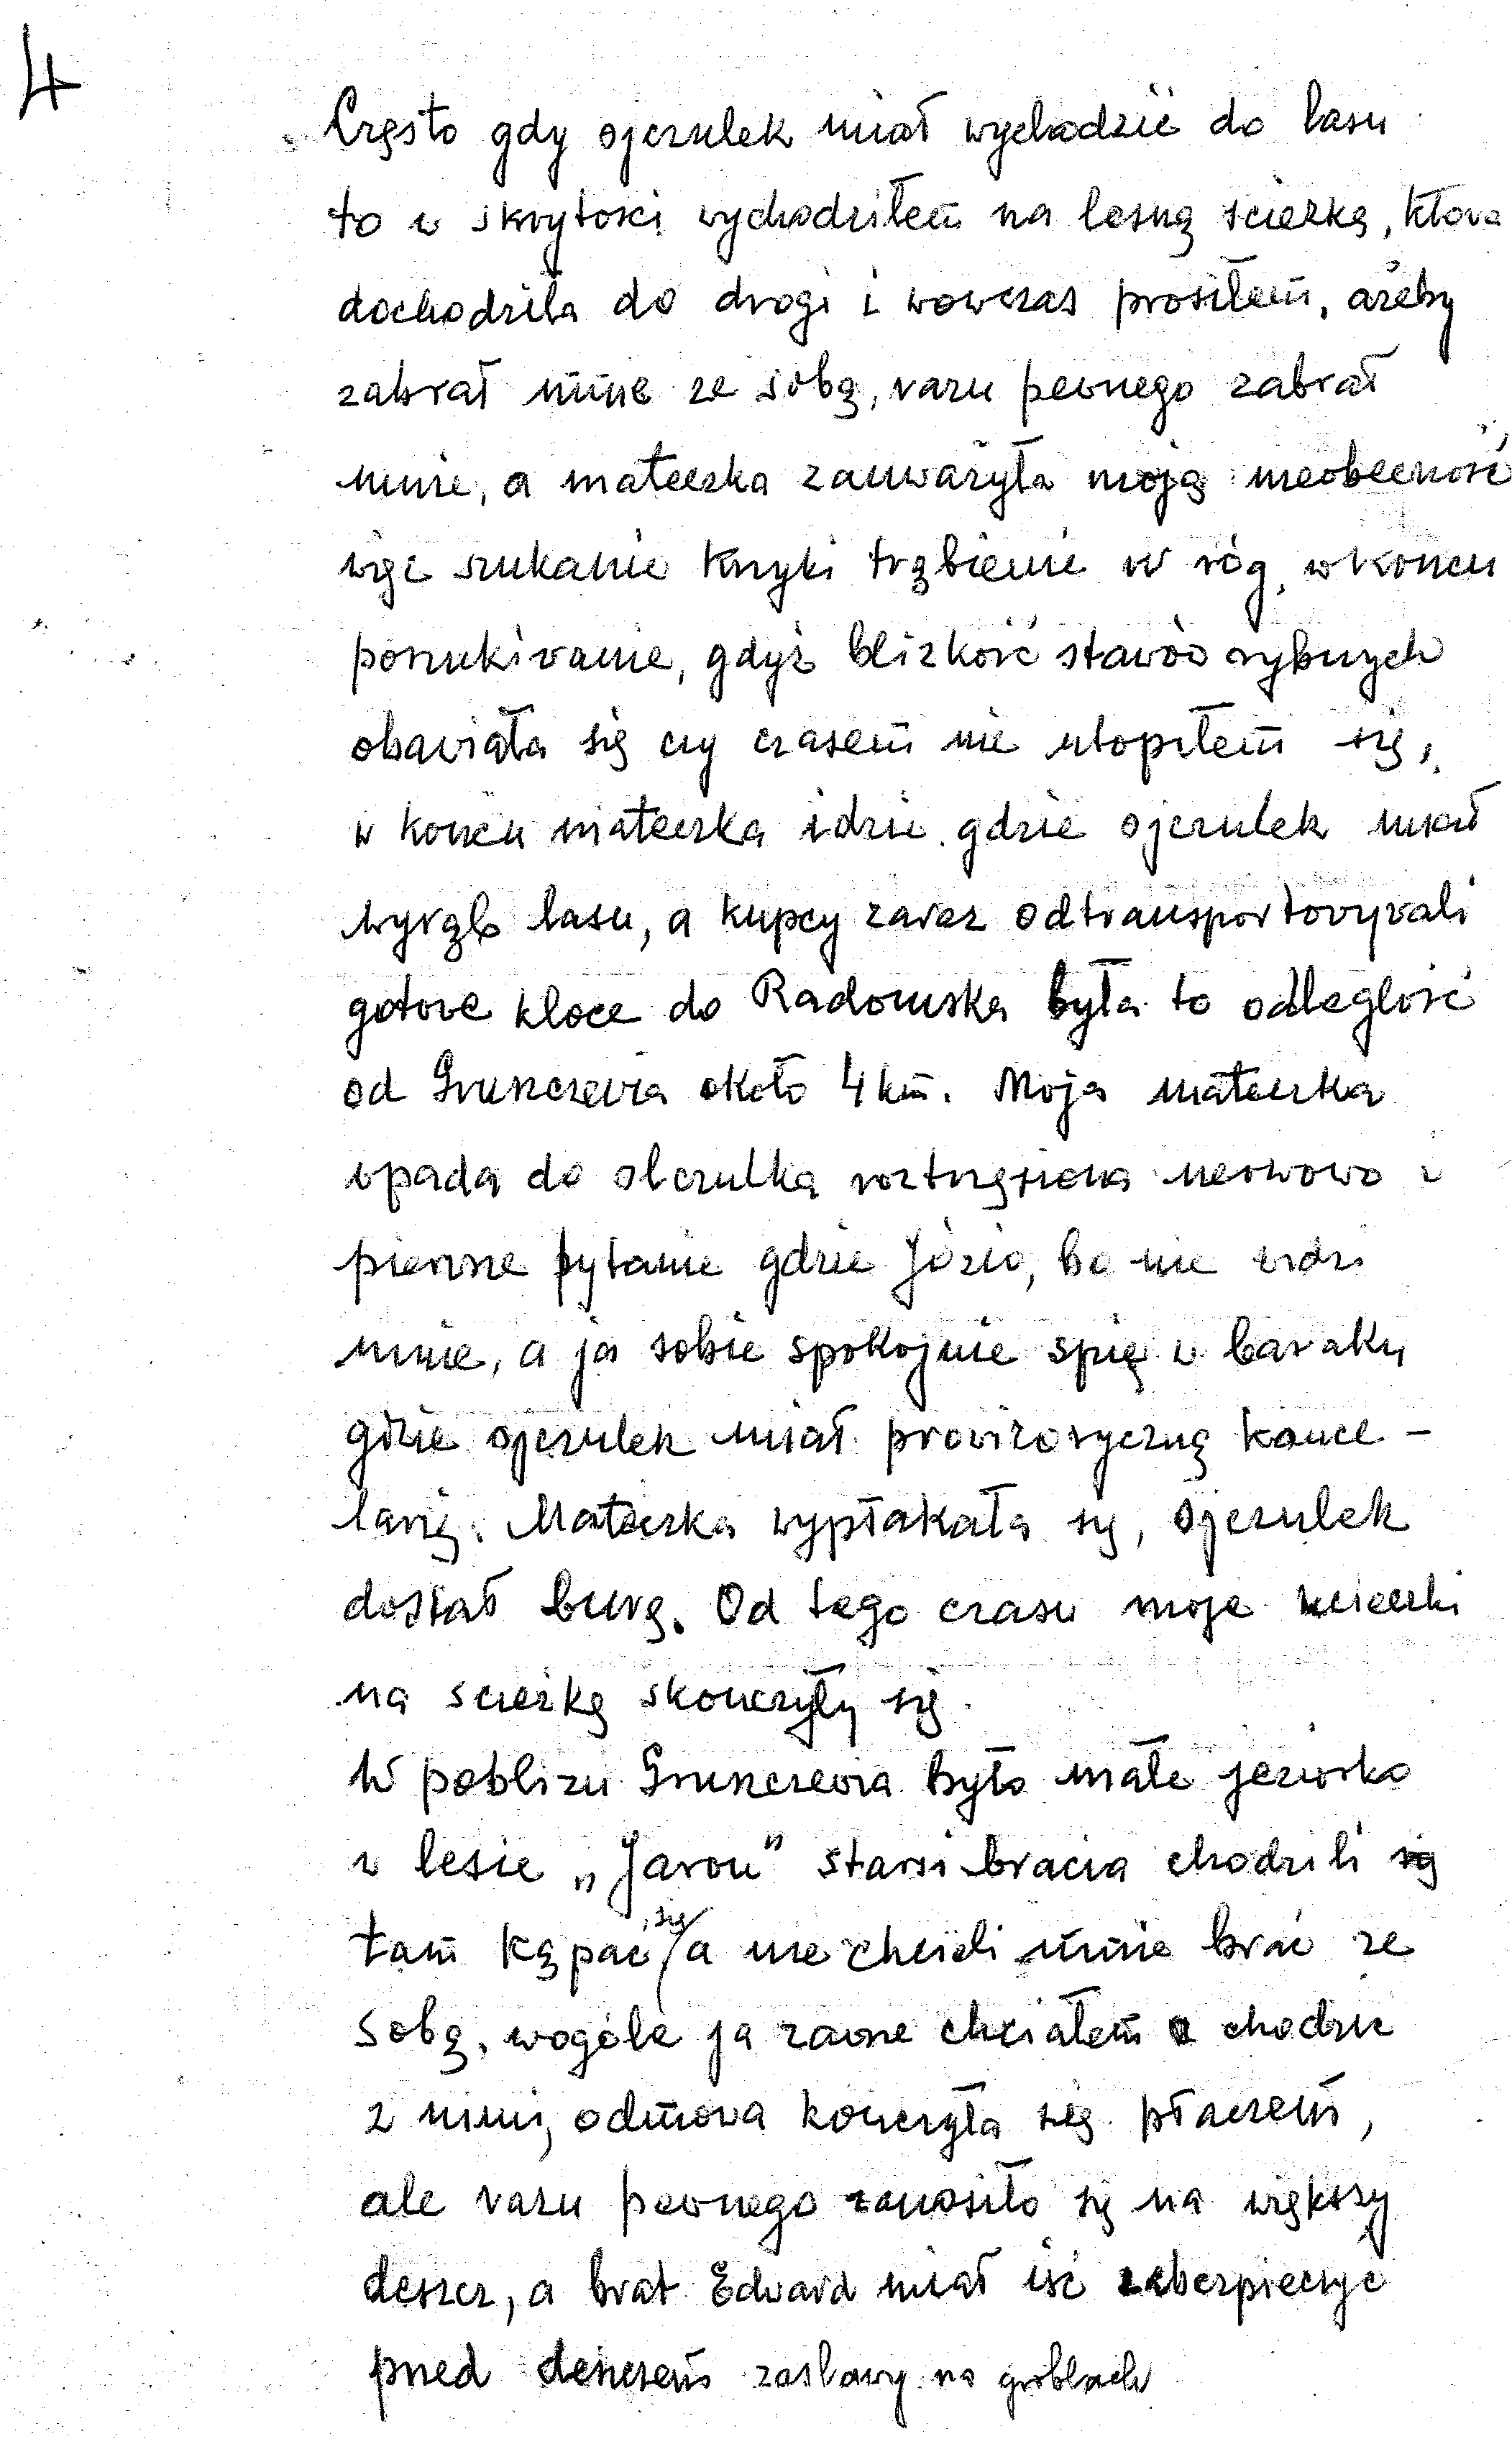 4
Często gdy ojczulek miał wychodzić do lasu
to w skrytości wychodziłem na lesną scieżkę, ktora
dochodziła do drogi i wowczas prosiłem, ażeby
zabrał mnie ze sobą, razu pewnego zabrał
mnie, a mateczka zauważyła moją nieobecność
więc szukanie krzyki trąbienie w róg, wkoncu
poszukiwanie, gdyż blizkość stawów rybnych
obawiała się czy czasem nie utopiłem się,
w końcu mateczka idzie gdzie ojczulek miał
wyrąb lasu, a kupcy zaraz odtransportowywali
gotowe kloce do Radomska była to odległość
od Gruszczewia około 4 km. Moja mateczka
wpada do olczulka roztrzęsiona nerwowo i
pierwsze pytanie gdzie Józio, bo nie widzi
mnie, a ja sobie spokojnie spię w baraku
gdzie ojczulek miał prowizoryczną kance-
larię. Mateczka wypłakała się, ojczulek
dostał burę. Od tego czasu moje ucieczki
na scieżkę skonczyły się.
W pobliżu Gruszczewia było małe jeziorko
w lesie „Jaron" starsi bracia chodzili
tam kąpać się a nie chcieli mnie brać ze
sobą, wogóle ja zawsze chciałem chodzić
z nimi, odmowa kończyła się płaczem,
ale razu pewnego zanosiło się na większy
deszcz, a brat Edward miał iść zabezpieczyć
przed deszczem zastawy na groblach